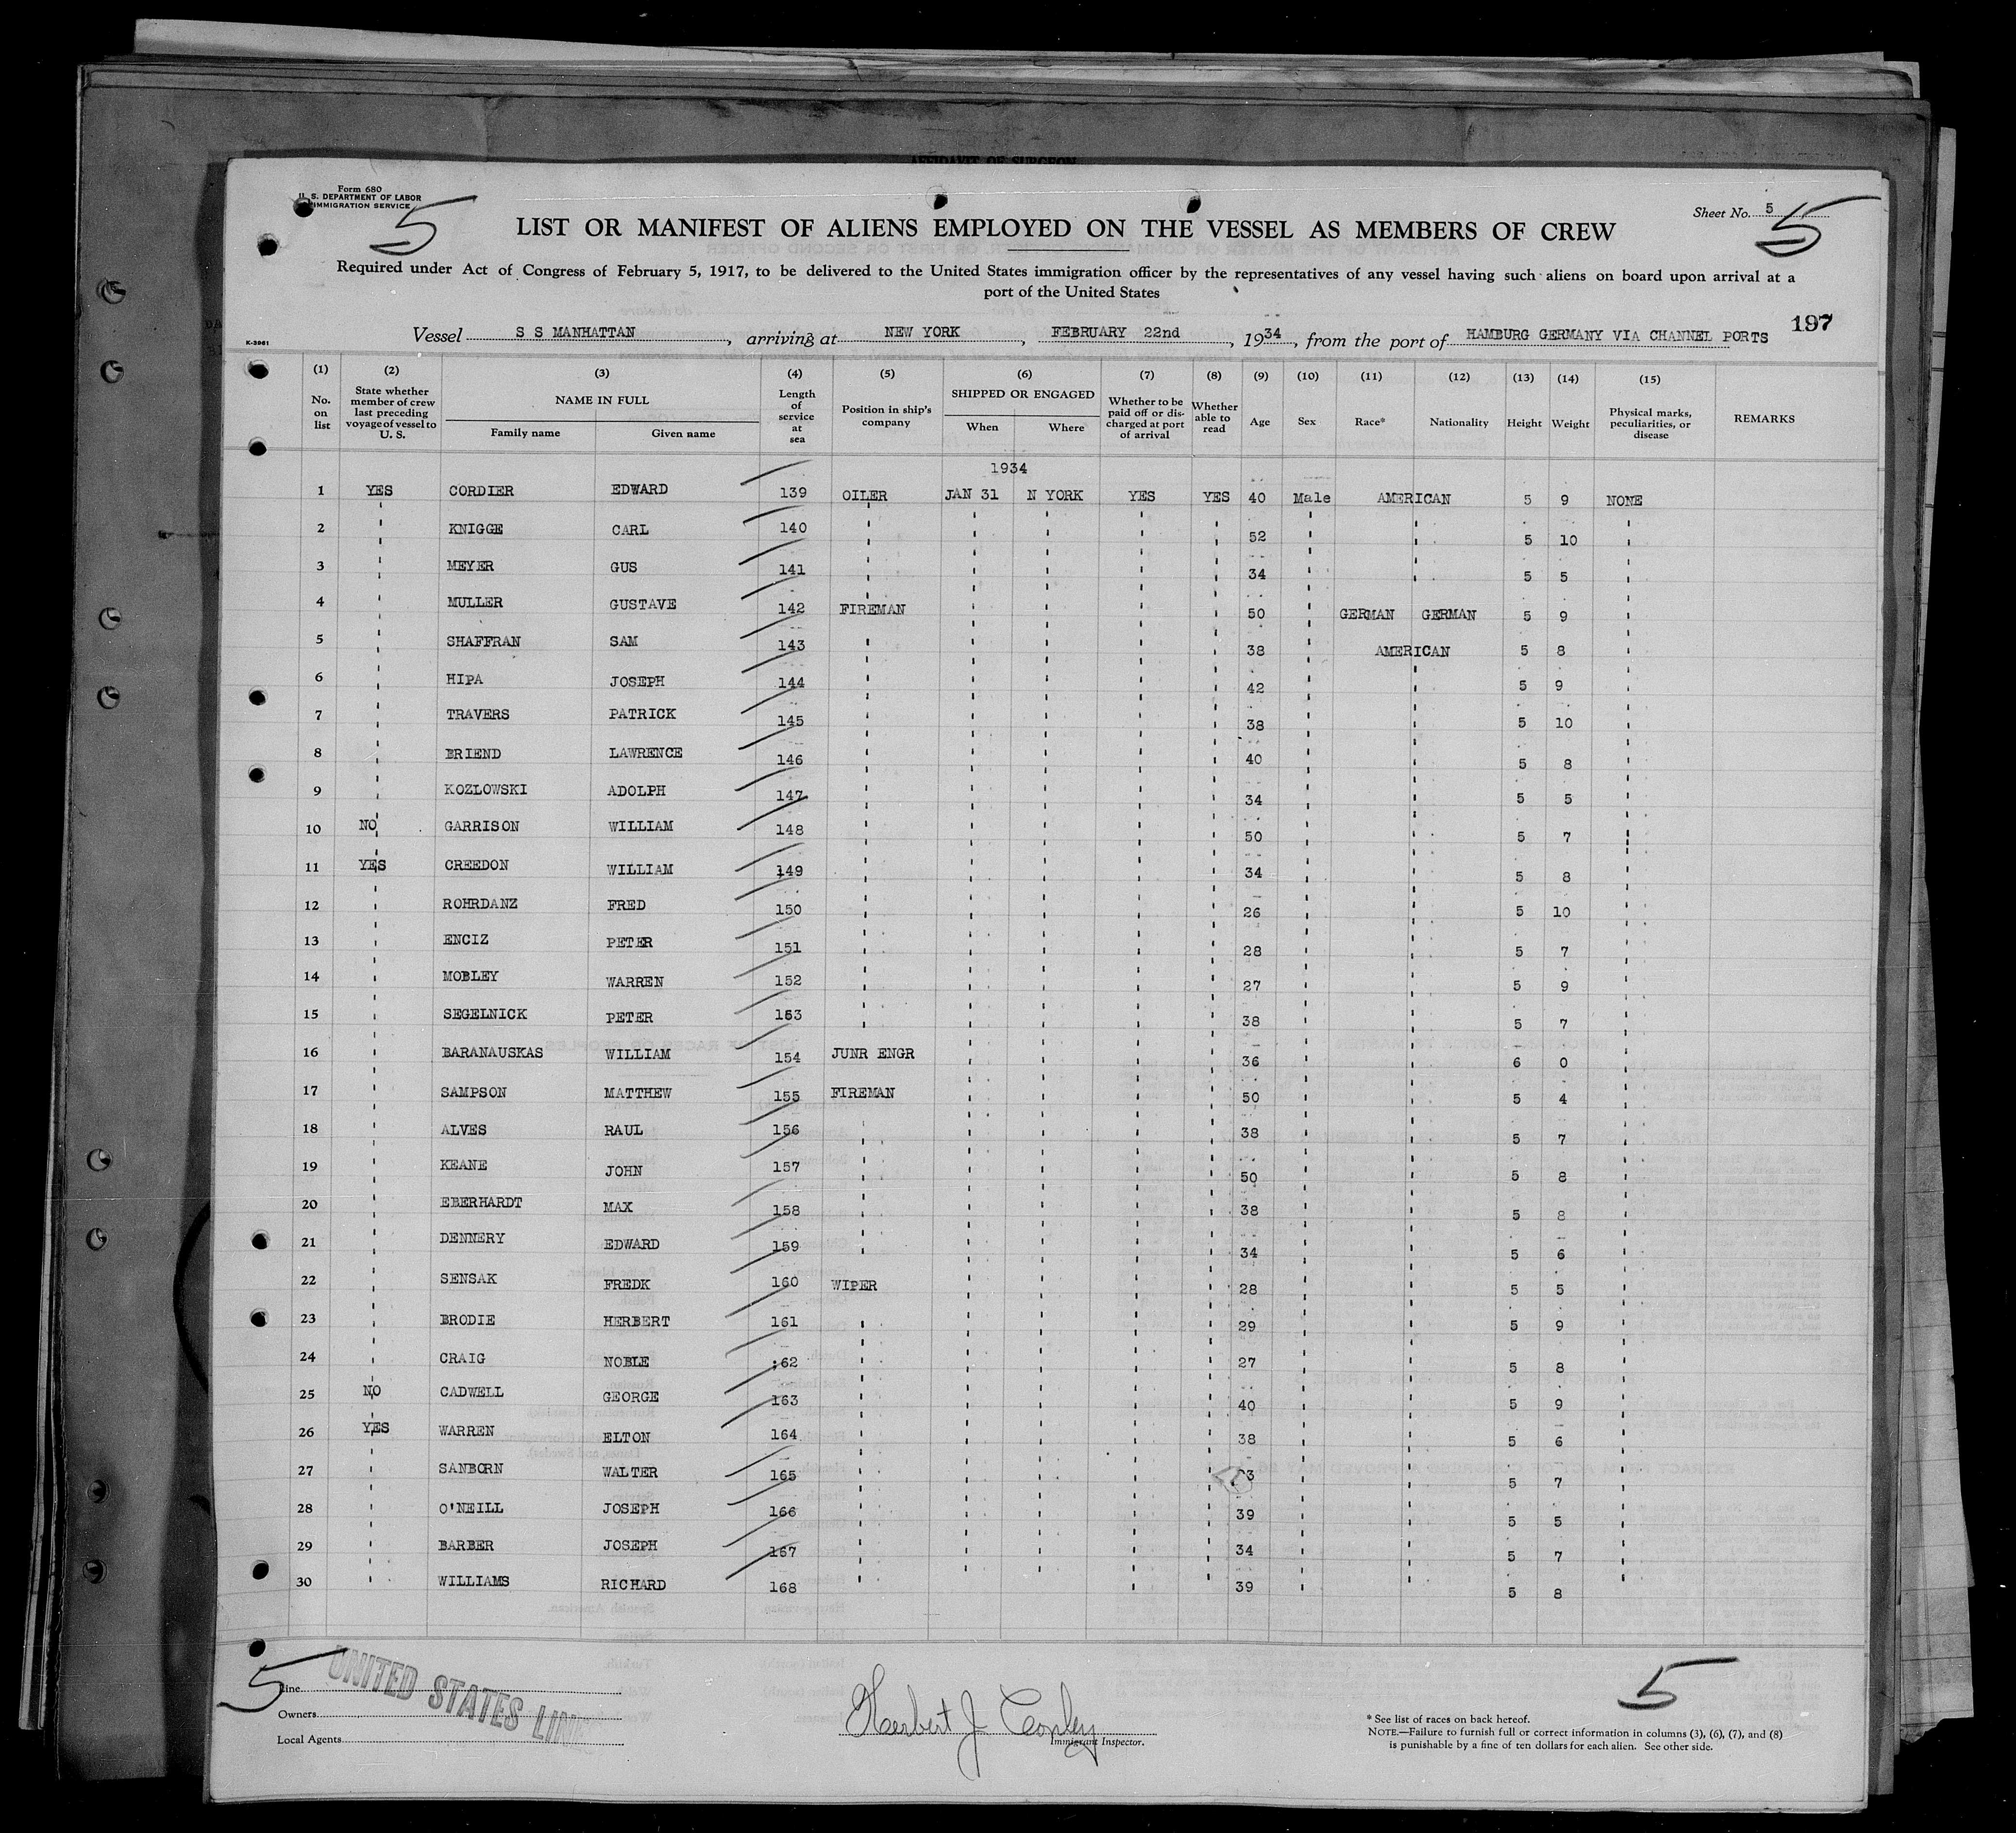 AFFIDAVIT OF SURGEON
Form 680
U. S. DEPARTMENT OF LABOR
IMMIGRATION SERVICE
5
Sheet No. 5
5
LIST OR MANIFEST OF ALIENS EMPLOYED ON THE VESSEL AS MEMBERS OF CREW
Required under Act of Congress of February 5, 1917, to be delivered to the United States immigration officer by the representatives of any vessel having such aliens on board upon arrival at a
port of the United States
197
K-3961
Vessel S S MANHATTAN, arriving at NEW YORK, FEBRUARY 22nd, 1934, from the port of HAMBURG GERMANY VIA CHANNEL PORTS
(1) (2) (3) (4) (5) (6) (7) (8) (9) (10) (11) (12) (13) (14) (15)
No. on list State whether member of crew last preceding voyage of vessel to U. S. NAME IN FULL Family name Given name Length of service at sea Position in ship's company SHIPPED OR ENGAGED When Where Whether to be paid off or discharged at port of arrival Whether able to read Age Sex Race* Nationality Height Weight Physical marks, peculiarities, or disease REMARKS
1934
1 YES CORDIER EDWARD 139 OILER JAN 31 N YORK YES YES 40 Male AMERICAN 5 9 NONE
2 " KNIGGE CARL 140 " " " " " 52 " " 5 10 "
3 " MEYER GUS 141 " " " " " 34 " " 5 5 "
4 " MULLER GUSTAVE 142 FIREMAN " " " " 50 " GERMAN GERMAN 5 9 "
5 " SHAFFRAN SAM 143 " " " " " 38 " AMERICAN 5 8 "
6 " HIPA JOSEPH 144 " " " " " 42 " " 5 9 "
7 " TRAVERS PATRICK 145 " " " " " 38 " " 5 10 "
8 " BRIEND LAWRENCE 146 " " " " " 40 " " 5 8 "
9 " KOZLOWSKI ADOLPH 147 " " " " " 34 " " 5 5 "
10 NO GARRISON WILLIAM 148 " " " " " 50 " " 5 7 "
11 YES CREEDON WILLIAM 149 " " " " " 34 " " 5 8 "
12 " ROHRDANZ FRED 150 " " " " " 26 " " 5 10 "
13 " ENCIZ PETER 151 " " " " " 28 " " 5 7 "
14 " MOBLEY WARREN 152 " " " " " 27 " " 5 9 "
15 " SEGELNICK PETER 153 " " " " " 38 " " 5 7 "
16 " BARANAUSKAS WILLIAM 154 JUNR ENGR " " " " 36 " " 6 0 "
17 " SAMPSON MATTHEW 155 FIREMAN " " " " 50 " " 5 4 "
18 " ALVES RAUL 156 " " " " " 38 " " 5 7 "
19 " KEANE JOHN 157 " " " " " 50 " " 5 8 "
20 " EBERHARDT MAX 158 " " " " " 38 " " 5 8 "
21 " DENNERY EDWARD 159 " " " " " 34 " " 5 6 "
22 " SENSAK FREDK 160 WIPER " " " " 28 " " 5 5 "
23 " BRODIE HERBERT 161 " " " " " 29 " " 5 9 "
24 " CRAIG NOBLE :62 " " " " " 27 " " 5 8 "
25 NO CADWELL GEORGE 163 " " " " " 40 " " 5 9 "
26 YES WARREN ELTON 164 " " " " " 38 " " 5 6 "
27 " SANBORN WALTER 165 " " " " " " " 5 7 "
28 " O'NEILL JOSEPH 166 " " " " " 39 " " 5 5 "
29 " BARBER JOSEPH 167 " " " " " 34 " " 5 7 "
30 " WILLIAMS RICHARD 168 " " " 39 " " 5 8 "
5
Line UNITED STATES LINE
Owners
Local Agents
Herbert J Conley
Immigrant Inspector.
5
* See list of races on back hereof.
NOTE.—Failure to furnish full or correct information in columns (3), (6), (7), and (8)
is punishable by a fine of ten dollars for each alien. See other side.